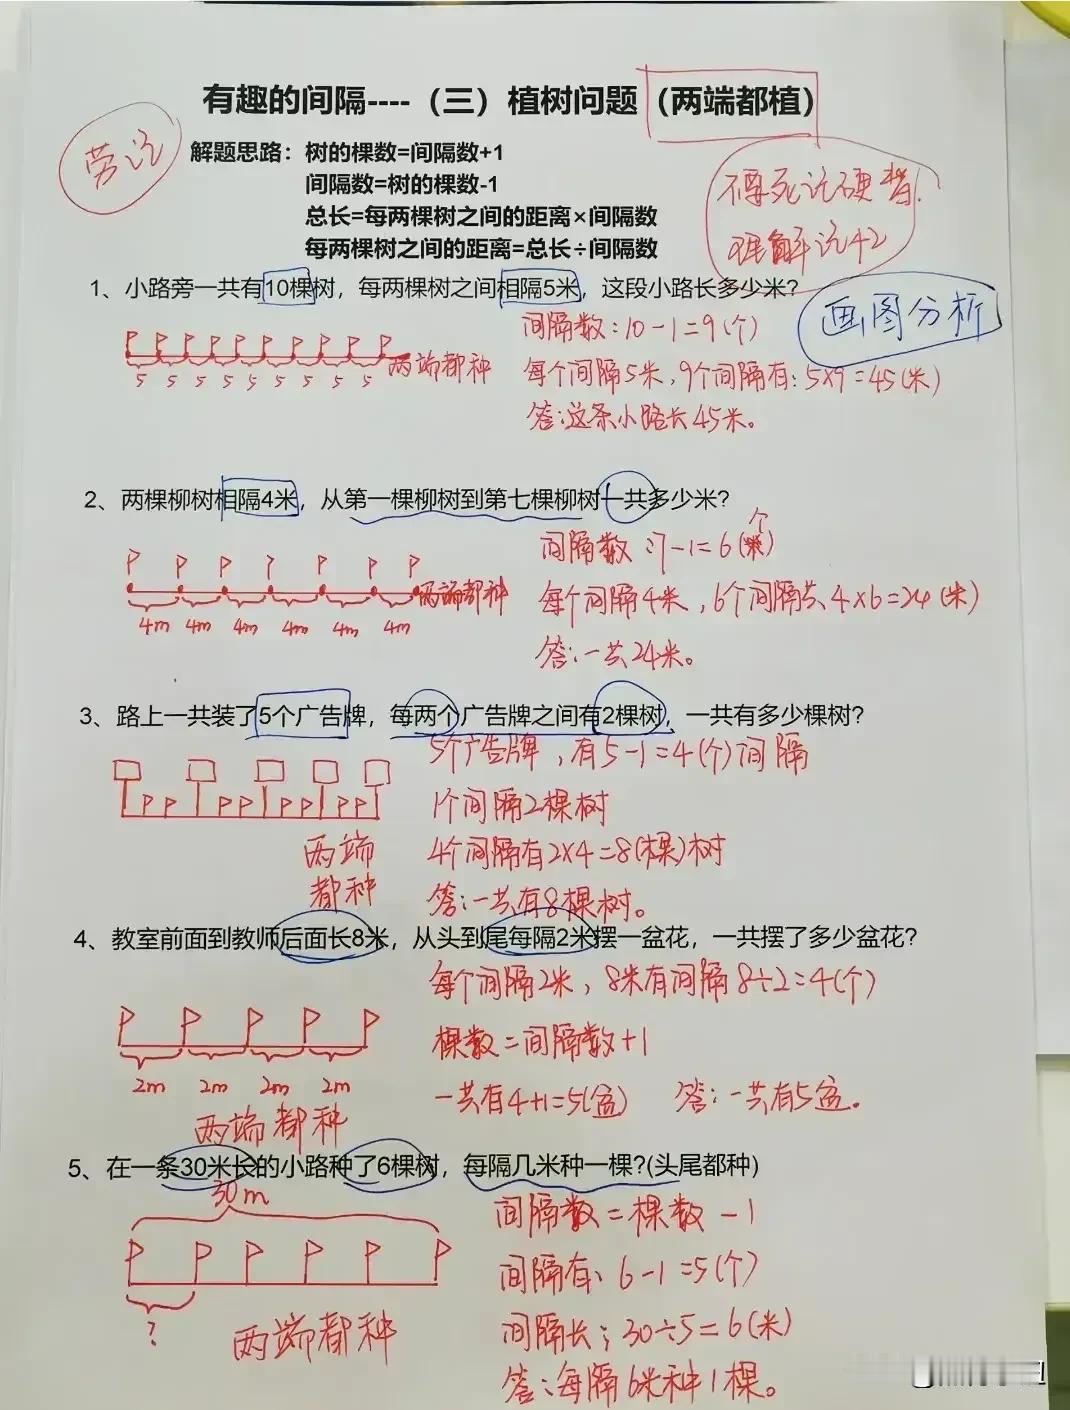 有趣的间隔----（三）植树问题（两端都植）
劳记
解题思路：树的棵数=间隔数+1
间隔数=树的棵数-1
总长=每两棵树之间的距离×间隔数
每两棵树之间的距离=总长÷间隔数
不要死记硬背!
理解记忆
画图分析
1、小路旁一共有10棵树，每两棵树之间相隔5米，这段小路长多少米？
5 5 5 5 5 5 5 5 5
两端都种
间隔数：10-1=9(个)
每个间隔5米，9个间隔有：5×9=45(米)
答：这条小路长45米。
2、两棵柳树相隔4米，从第一棵柳树到第七棵柳树一共多少米？
4m 4m 4m 4m 4m 4m
两端都种
间隔数：7-1=6(个)
每个间隔4米，6个间隔共4×6=24(米)
答：一共24米。
3、路上一共装了5个广告牌，每两个广告牌之间有2棵树，一共有多少棵树？
两端
都种
5个广告牌，有5-1=4(个)间隔
1个间隔2棵树
4个间隔有2×4=8(棵)树
答：一共有8棵树。
4、教室前面到教师后面长8米，从头到尾每隔2米摆一盆花，一共摆了多少盆花？
2m 2m 2m 2m
两端都种
每个间隔2米，8米有间隔8÷2=4(个)
棵数=间隔数+1
一共有4+1=5(盆) 答：一共有5盆.
5、在一条30米长的小路种了6棵树，每隔几米种一棵?(头尾都种)
30m
?
两端都种
间隔数=棵数-1
间隔有：6-1=5(个)
间隔长：30÷5=6(米)
答：每隔6米种1棵。